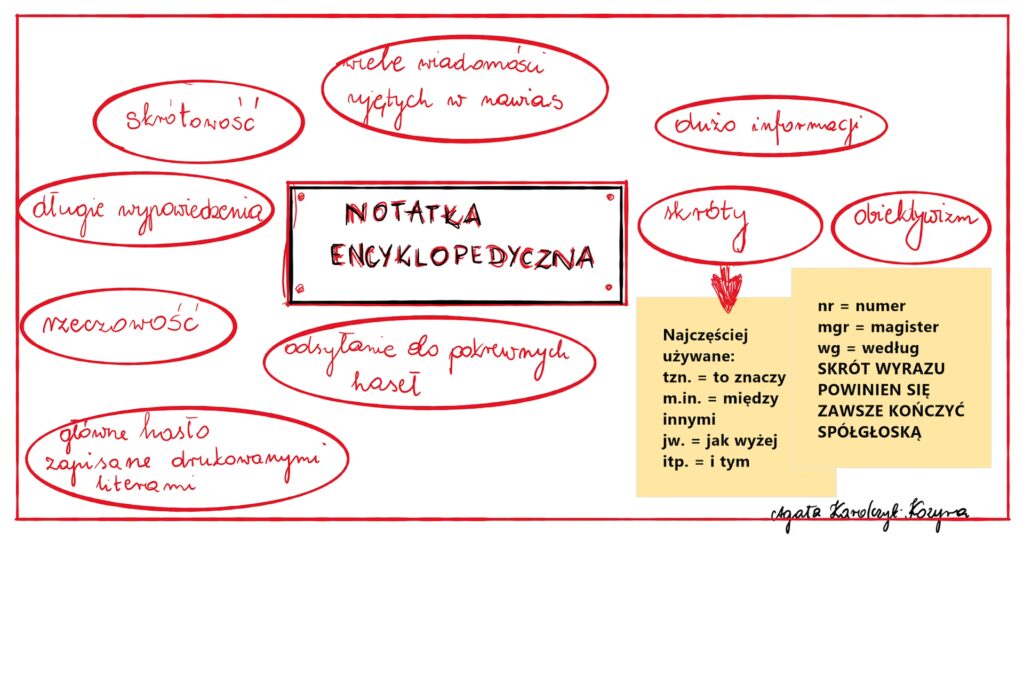 wiele wiadomości
ujętych w nawias
skrótowość
dużo informacji
długie wypowiedzenia
NOTATKA
ENCYKLOPEDYCZNA
skróty
obiektywizm
rzeczowość
odsyłanie do pokrewnych
haseł
główne hasło
zapisane drukowanymi
literami
Najczęściej
używane:
tzn. = to znaczy
m.in. = między
innymi
jw. = jak wyżej
itp. = i tym
nr = numer
mgr = magister
wg = według
SKRÓT WYRAZU
POWINIEN SIĘ
ZAWSZE KOŃCZYĆ
SPÓŁGŁOSKĄ
Agata Karolczyk-Kozyra